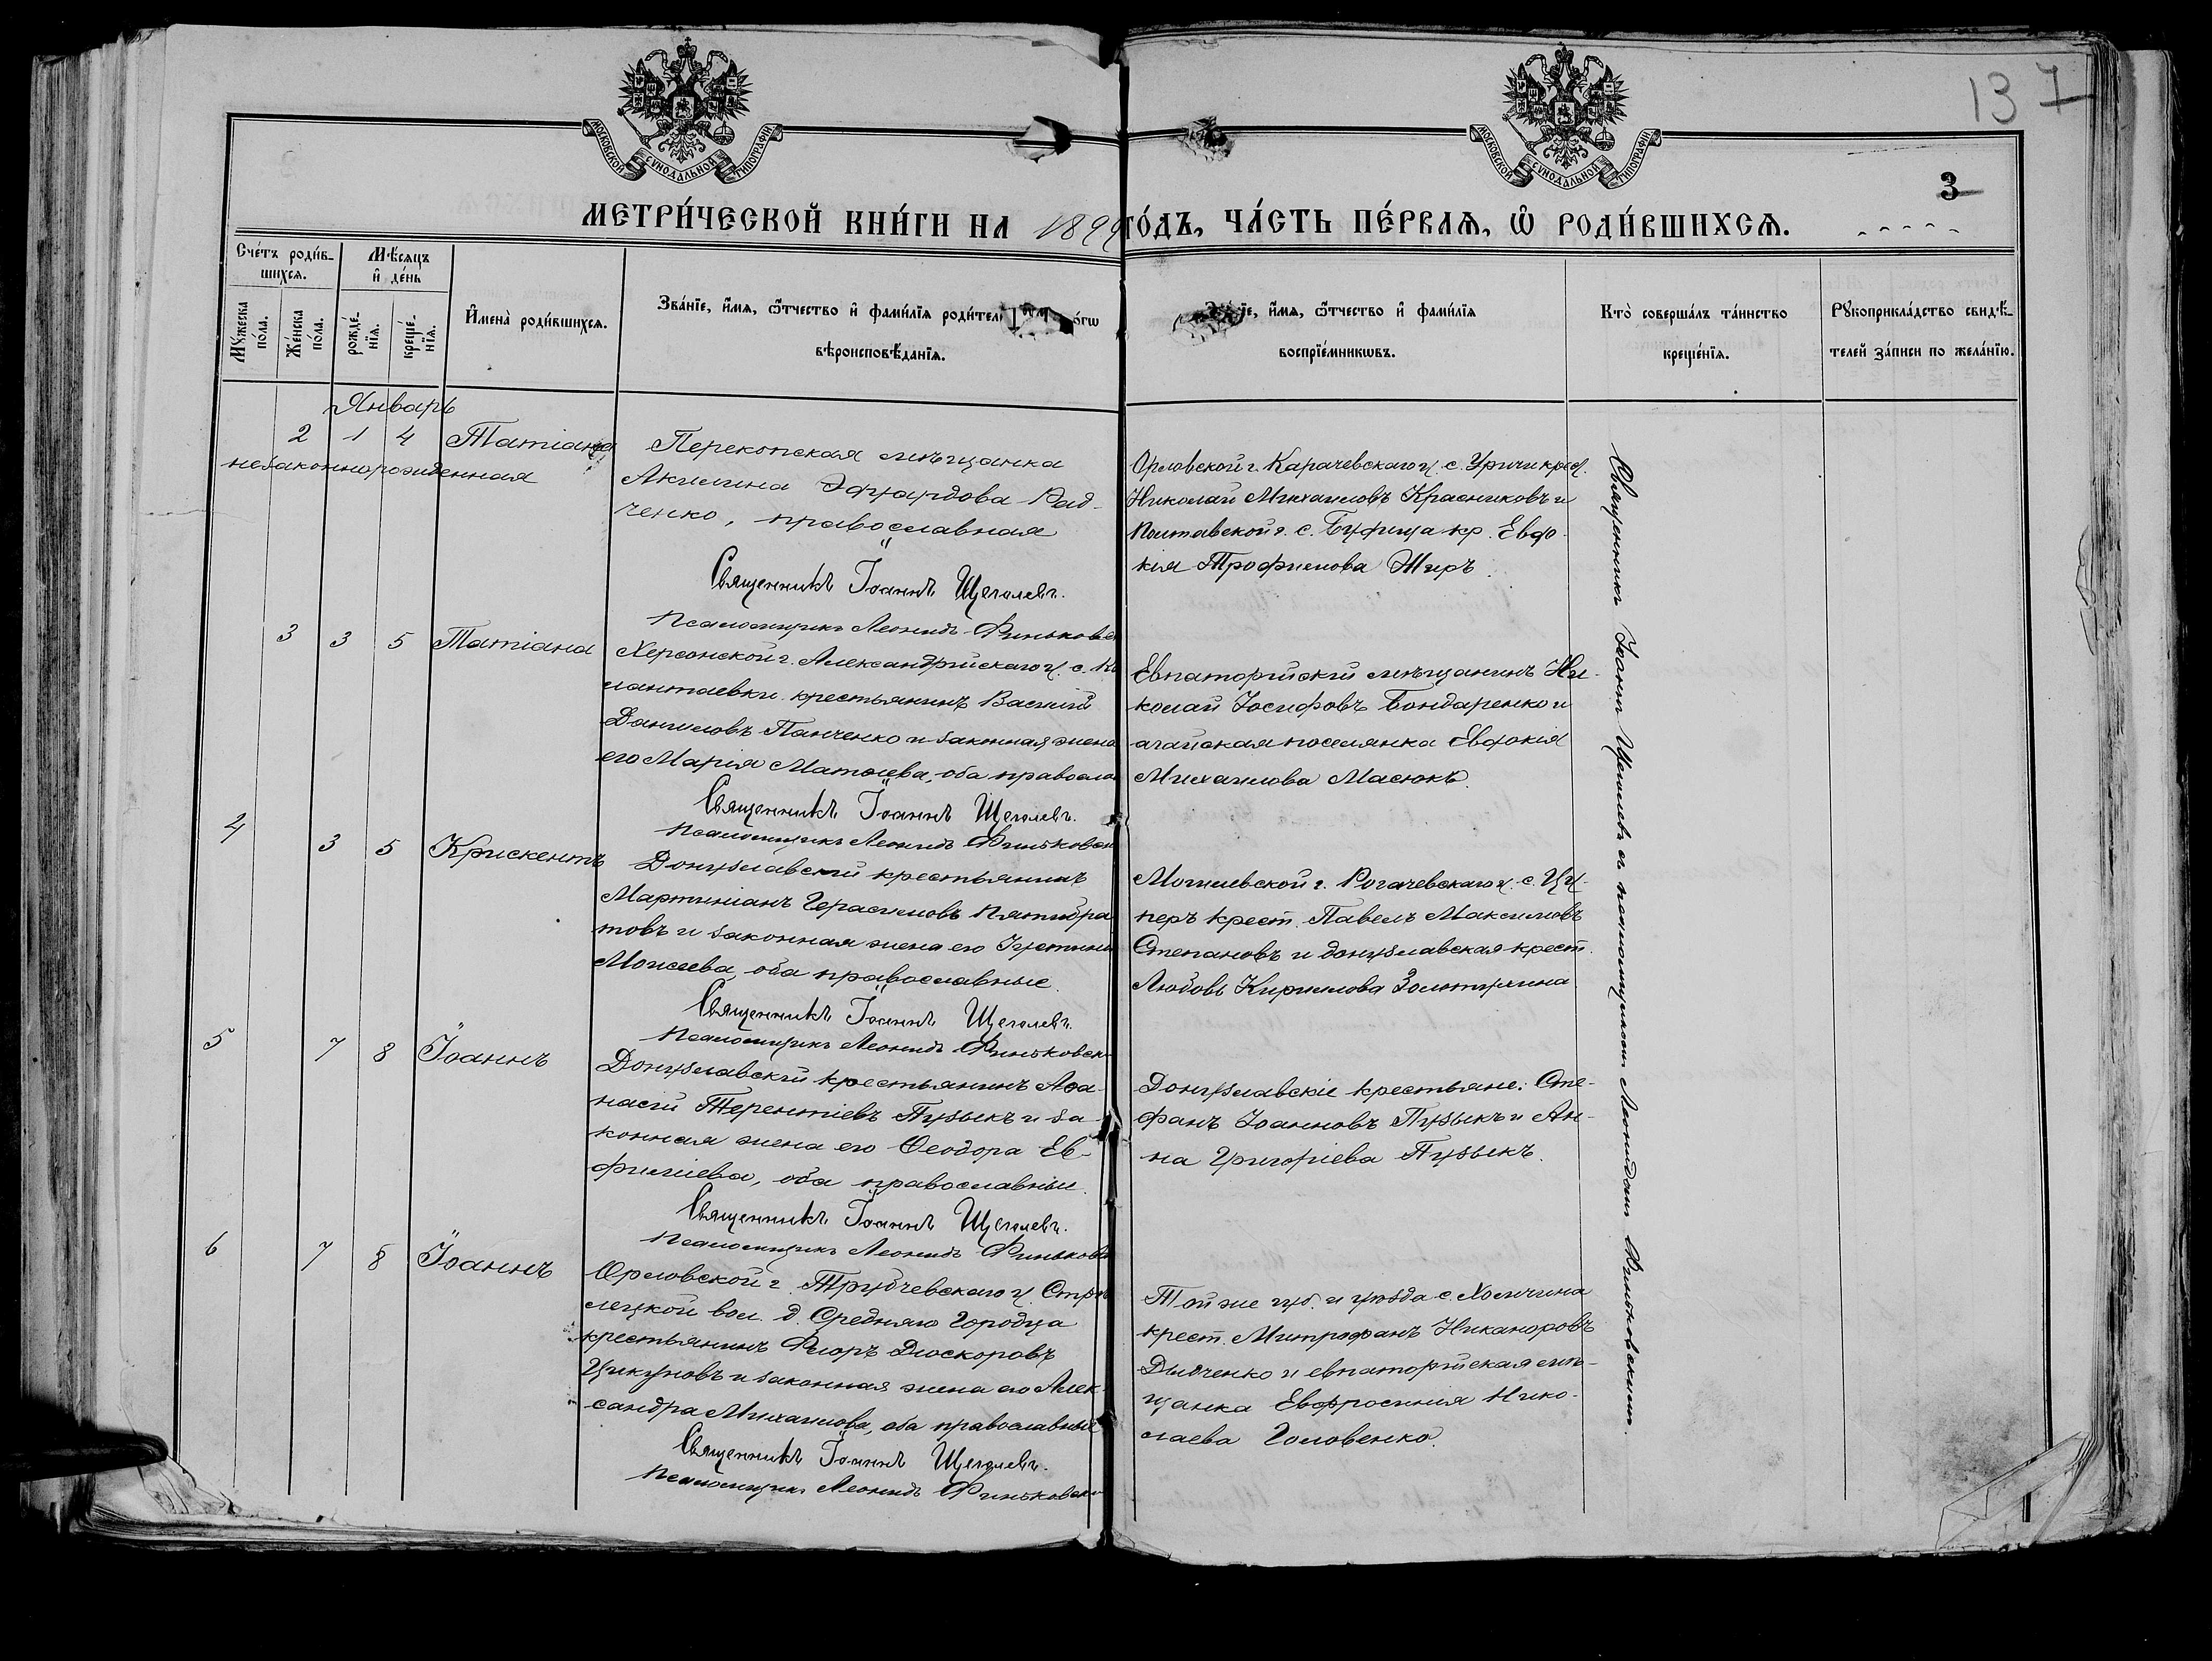 МОСКОВСКОЙ СѴНОДАЛЬНОЙ ТИПОГРАФІИ
МОСКОВСКОЙ СѴНОДАЛЬНОЙ ТИПОГРАФІИ
137
3
МЕТРИ́ЧЕСКОЙ КНИ́ГИ НА 1899 ГО́ДЪ, ЧА́СТЬ ПЕ́РВАѦ, Ѡ҆ РОДИ́ВШИХСѦ.
Сче́тъ роди́в-
шихсѧ.
Мѣ́сѧцъ
и҆ де́нь
Мꙋ́жеска по́ла.
Же́нска по́ла.
рожде́-нїѧ.
креще́-нїѧ.
И҆мена̀ роди́вшихсѧ.
Зва́нїе, и҆́мѧ, ѻ҆́тчество и҆ фами́лїѧ роди́тел
о́гѡ
вѣроисповѣ́данїѧ.
їе, и҆́мѧ, ѻ҆́тчество и҆ фами́лїѧ
воспрїе́мникѡвъ.
Кто̀ соверша́лъ та́инство
креще́нїѧ.
Рꙋкоприкла́дство свидѣ́-
телей за́писи по жела́нїю.
Январь
2 1 4 Татіана
незаконнорожденная
Перекопская мѣщанка
Акилина Эдуардова Рад-
ченко, православная
Священникъ Іоаннъ Щеголевъ.
Псаломщикъ Леонидъ Финьковск
Орловской г. Карачевскаго у. с. Уричи крест.
Николай Михаиловъ Красниковъ и
Полтавской г. с. кр. Евдо-
кія Трофимова Жиръ.
3 3 5 Татіана
Херсонской г. Александрійскаго у. с. Ка
лантаевки крестьянинъ Василій
Даниловъ Панченко и законная жена
его Марія Матѳіева, оба правосла
Священникъ Іоаннъ Щеголевъ.
Псаломщикъ Леонидъ Финьковск
Евпаторійский мѣщанинъ Ни-
колай Іосифовъ Бондаренко и
агайская поселянка Евдокія
Михаилова Масюкъ.
4 3 5 Крискентъ
Донузлавскій крестьянинъ
Мартиніанъ Герасимовъ Пятибра
товъ и законная жена его Іустина
Моисеева, оба православные.
Священникъ Іоаннъ Щеголевъ.
Псаломщикъ Леонидъ Финьковск
Могилевской г. Рогачевскаго у. с. Цу-
перъ крест. Павелъ Максимовъ
Степановъ и донузлавская крест.
Любовь Кириллова Золотухина
5 7 8 Іоаннъ
Донузлавскій крестьянинъ Аѳа-
насій Терентіевъ Пузыкъ и за-
конная жена его Ѳеодора Ев-
фиміева, оба православные.
Священникъ Іоаннъ Щеголевъ.
Псаломщикъ Леонидъ Финьковск
Донузлавскіе крестьяне: Сте-
фанъ Іоанновъ Пузыкъ и Ан-
на Григоріева Пузыкъ.
6 7 8 Іоаннъ
Орловской г. Трубчевскаго у. Стрѣ
лецкой вол. д. Средняго Городца
крестьянинъ Флоръ Діоскоровъ
Цикуновъ и законная жена его Алек-
сандра Михаилова, оба православные
Священникъ Іоаннъ Щеголевъ.
Псаломщикъ Леонидъ Финьковск
Той же губ. и уѣзда с. Холмчина
крест. Митрофанъ Никаноровъ
Дидченко и евпаторійская мѣ-
щанка Евфросинія Нико-
лаева Головенко.
Священникъ Іоаннъ Щеголевъ съ псаломщикомъ Леонидомъ Финьковскимъ.